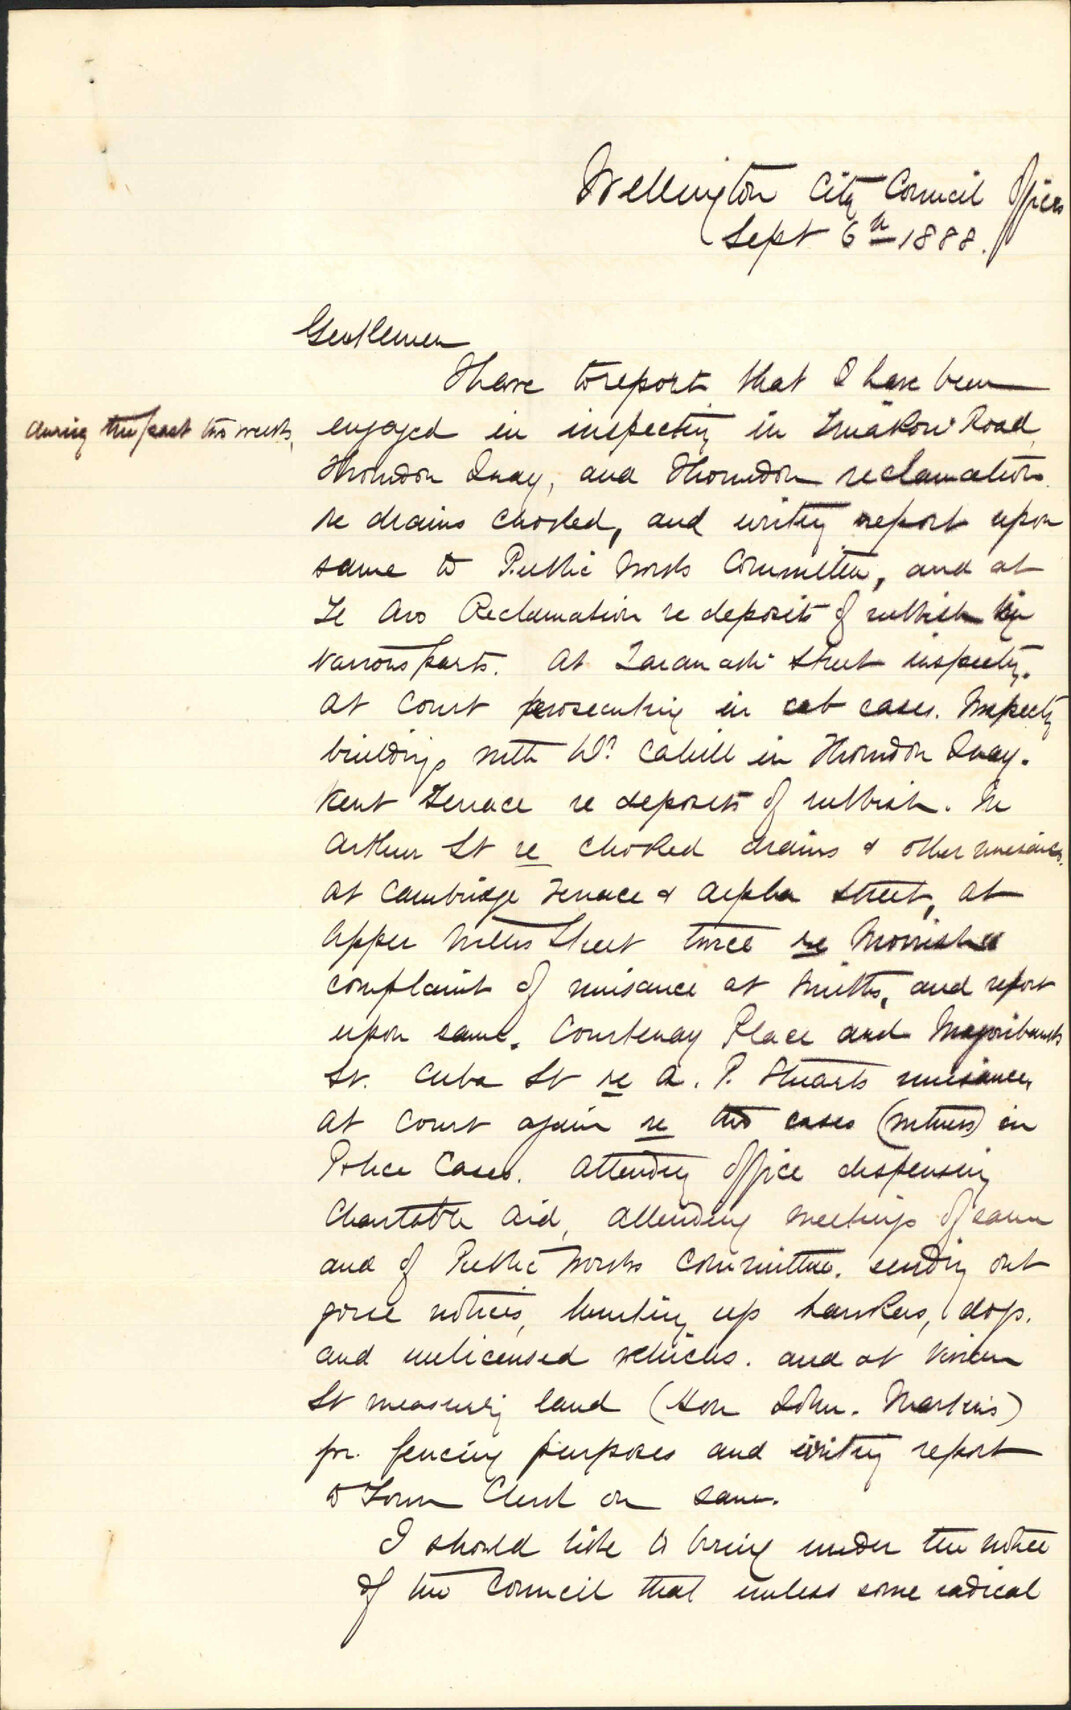 Wellington City Council Offices
Sept 6th 1888.
Gentlemen
I have to report that I have been
during the past two weeks,
engaged in inspecting in Tinakori Road,
Thorndon Quay, and Thorndon reclamation
re drains choked, and writing report upon
same to Public Works Committee, and at
Te Aro Reclamation re deposits of rubbish in
various parts. At Taranaki Street inspecting.
At Court prosecuting in cab cases. Inspecting
buildings with Dr Cahill in Thorndon Quay.
Kent Terrace re deposits of rubbish. In
Arthur St re choked drains & other nuisances.
At Cambridge Terrace & Alpha Street, at
Upper Willis Street twice re
complaint of nuisance at Smiths, and report
upon same. Courtenay Place and Majoribanks
St. Cuba St re A. P. Stuarts nuisance,
At Court again re two cases (witness) in
Police Cases. Attending office dispensing
Charitable Aid, attending meetings of same
and of Public Works Committee. sending out
gorse notices, hunting up hawkers, dogs.
and unlicensed vehicles. and at Vivian
St measuring land (Hon John. Martins)
for fencing purposes and writing report
to Town Clerk on same.
I should like to bring under the notice
of the Council that unless some radical